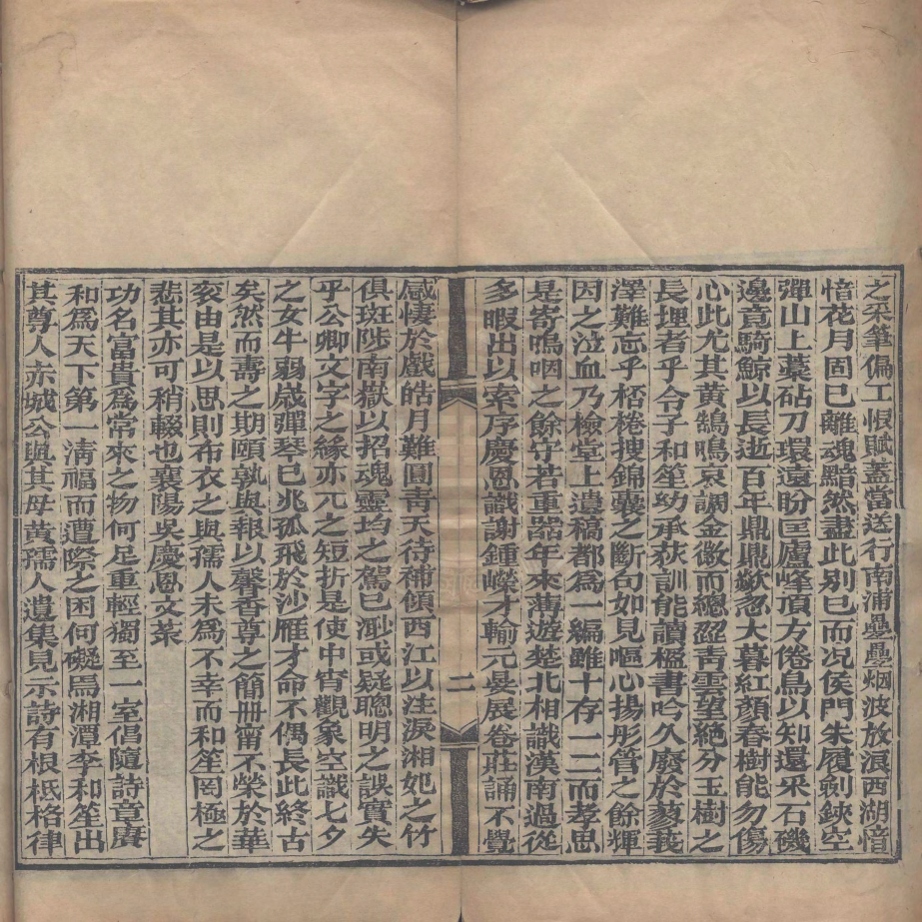 之采筆偏工恨賦蓋當送行南浦疊疊烟波放浪西湖愔
愔花月固已離魂黯然盡此别已而况侯門朱履劍鋏空
彈山上藁砧刀環遠盼匡廬峰頂方倦鳥以知還采石磯
邊竟騎鯨以長逝百年鼎鼎歘忽大暮紅顏春樹能勿傷
心此尤其黃鵠鳴哀調金徽而總澀青雲望絕分玉樹之
長埋者乎令子和笙幼承荻訓能讀楹書吟久廢於蓼莪
澤難忘乎桮棬搜錦囊之斷句如見嘔心揚彤管之餘輝
因之泣血乃檢堂上遺稿都爲一編雖十存一二而孝思
是寄嗚咽之餘守若重器年來薄遊楚北相識漢南過從
多暇出以索序慶恩識謝鍾嶸才輸元晏展卷莊誦不覺
二
感悽於戲皓月難圓青天待補傾西江以注淚湘妃之竹
俱斑陟南嶽以招魂靈均之駕已渺或疑聰明之誤實失
乎公卿文字之緣亦兀之短折是使中宵觀象空識七夕
之女牛弱歲彈琴已兆孤飛於沙雁才命不偶長此終古
矣然而壽之期頤孰與報以馨香尊之簡冊甯不榮於華
衮由是以思則布衣之與孺人未爲不幸而和笙罔極之
悲其亦可稍輟也襄陽吳慶恩文菜
功名富貴爲常來之物何足重輕獨至一室倡隨詩章賡
和爲天下第一淸福而遭際之困何礙焉湘潭李和笙出
其尊人赤城公與其母黃孺人遺集見示詩有根柢格律